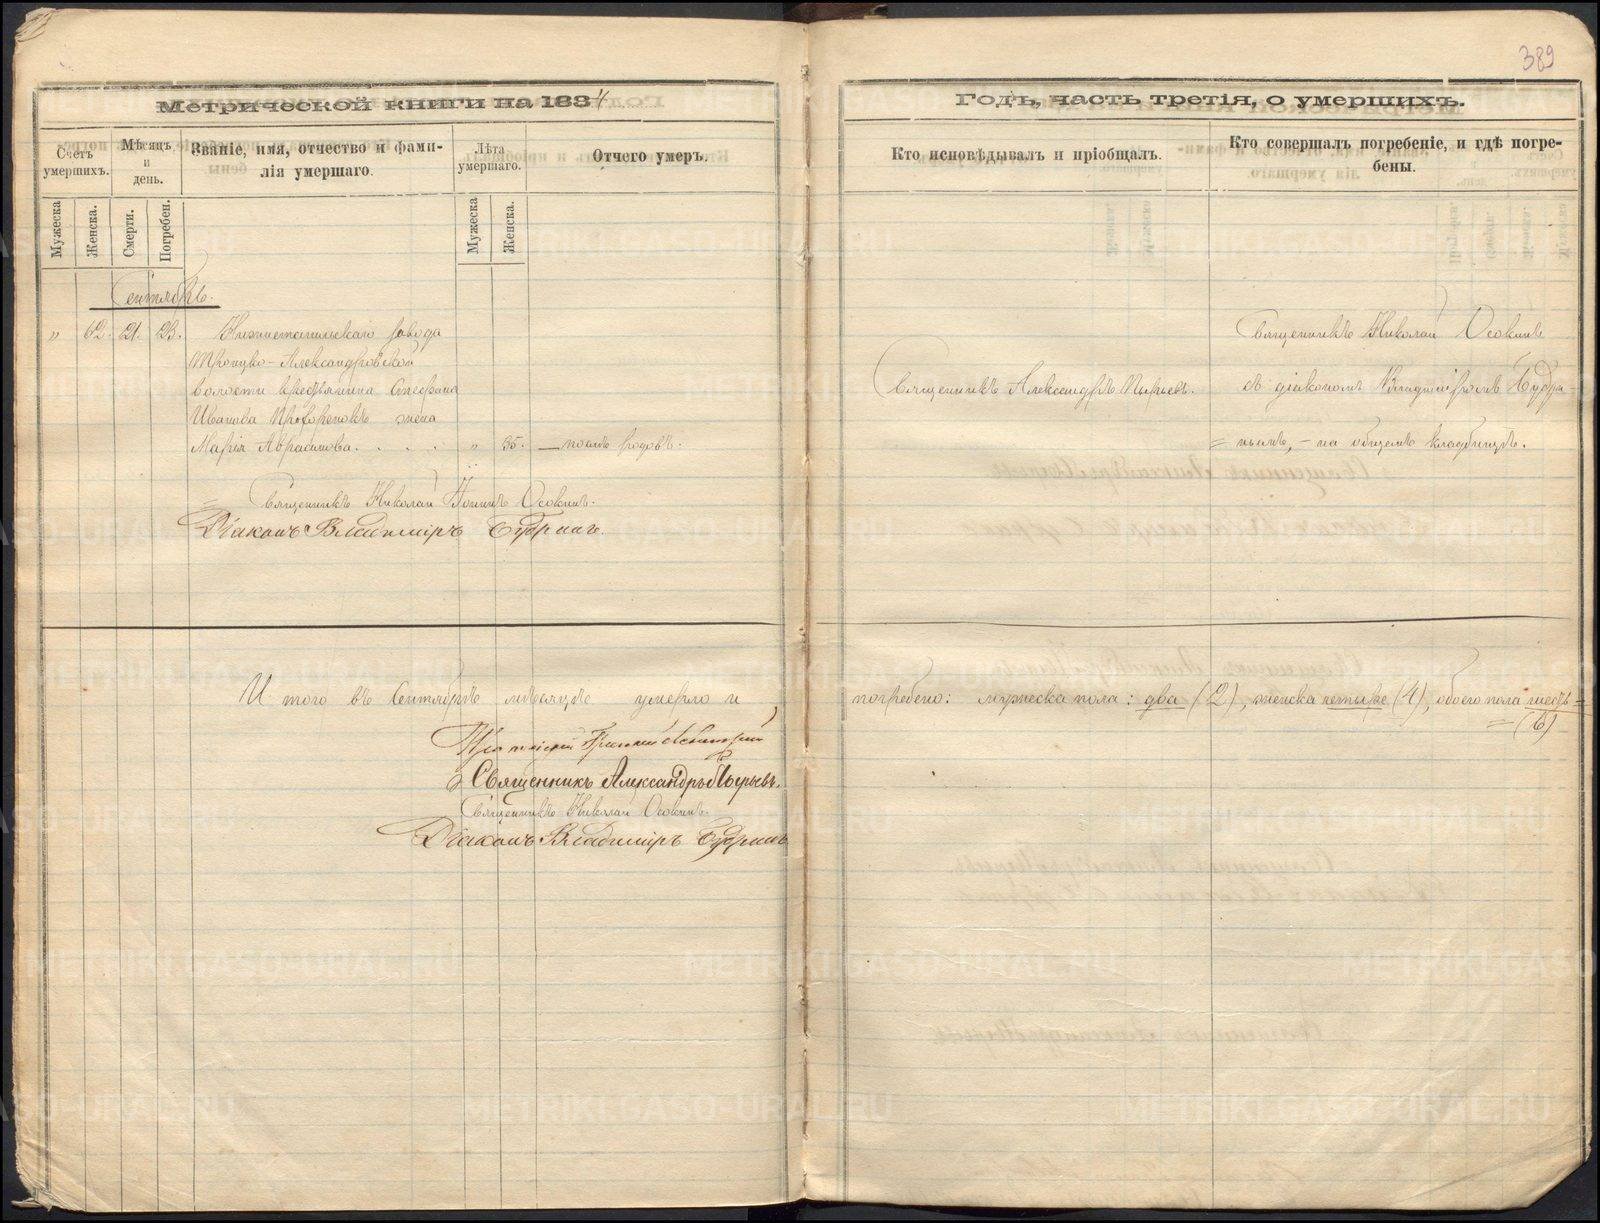 389
Метрической книги на 1884
Годъ, часть третія, о умершихъ.
Счетъ умершихъ.
Мѣсяцъ и день.
Званіе, имя, отчество и фами-
лія умершаго.
Лѣта умершаго.
Отчего умеръ.
Кто исповѣдывалъ и пріобщалъ.
Кто совершалъ погребеніе, и гдѣ погре-
бены.
Мужеска
Женска.
Смерти.
Погребен.
Мужеска
Женска.
Сентябрь.
" 62. 21. 23. Нижнетагильскаго завода
Троицко-Александровской
волости крестьянина Стефана
Иванова жена
Марія . . . . " 35. — родовъ.
Священникъ Александръ Пырьевъ.
Священникъ Николай Осокинъ
съ діакономъ Владиміромъ Будри-
= нымъ, – на общемъ кладбищѣ.
Священникъ Николай Осокинъ.
Діаконъ Владиміръ Будринъ.
Итого въ Сентябрѣ мѣсяцѣ умерло и
погребено: мужеска пола: два (2), женска четыре (4), обоего пола шесть =
= (6)
Священникъ Александръ Пырьевъ.
Священникъ Николай Осокинъ.
Діаконъ Владиміръ Будринъ
METRIKI.GASO-URAL.RU